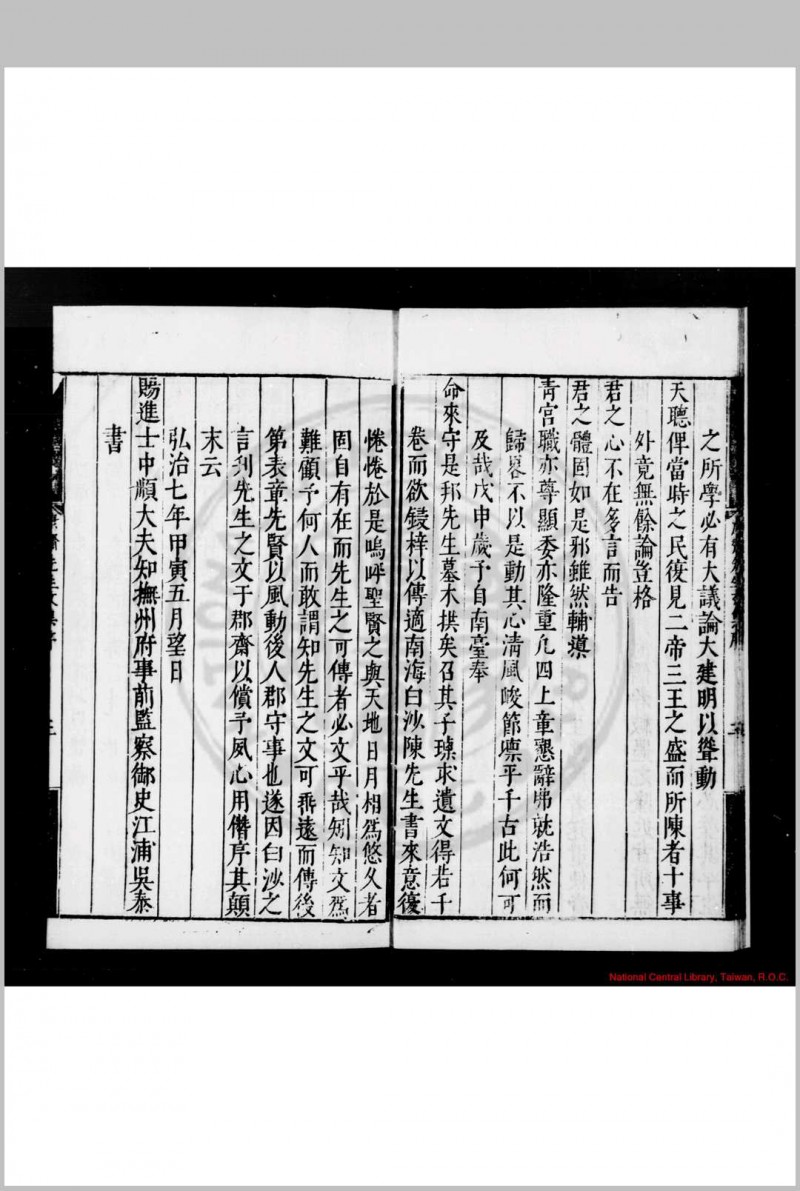 之所學必有大議論大建明以聳動
天聽俾當時之民復見二帝三王之盛而所陳者十事
外竟無餘論登格
君之心不在多言而告
君之體固如是邪雖然輔導
青宮職亦尊顯委亦隆重凡四上章懇辭弗就浩然而
歸畧不以是動其心清風峻節凜乎千古此何可
及哉戊申歲予自南臺奉
命來守是邦先生墓木拱矣召其子璖求遺文得若千
卷而欲鋟梓以傳適南海白沙陳先生書來意復
惓惓於是嗚呼聖賢之與天地日月相爲悠久者
固自有在而先生之可傳者必文乎哉知知文爲
難顧予何人而敢謂知先生之文可乘遠而傳後
第表章先賢以風動後人郡守事也遂因白沙之
言刋先生之文于郡齋以償予夙心用僭序其顛
末云
弘治七年甲寅五月望日
賜進士中順大夫知撫州府事前監察御史江浦吳泰
書
National Central Library, Taiwan, R.O.C.